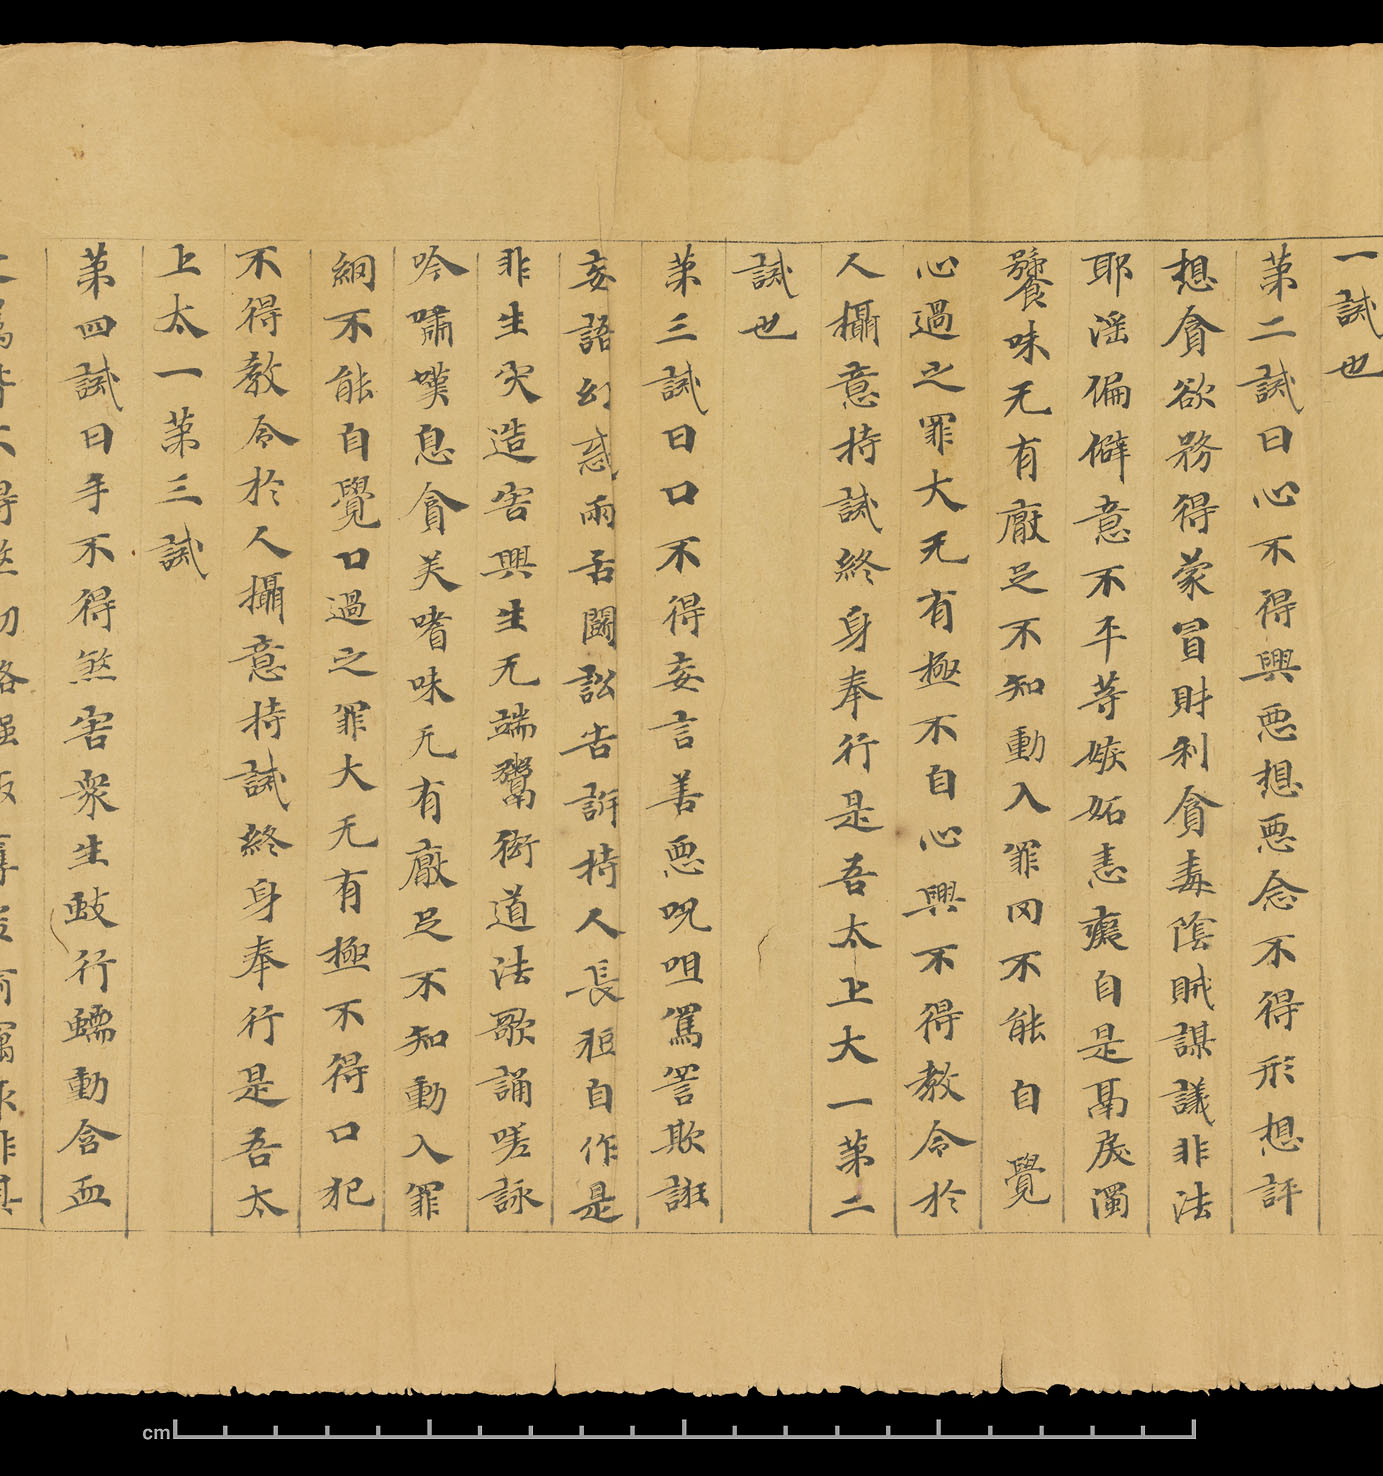 一誡也
第二誡曰心不得興惡想惡念不得形想評
想貪欲務得蒙冒財利貪毒陰賊謀議非法
耶淫偏僻意不平等嫉妬恚癡自是鬲戾濁
饕味无有厭足不知動入罪罔不能自覺
心過之罪大无有極不自心興不得教令於
人攝意持誡終身奉行是吾太上太一第二
誡也
第三誡曰口不得妄言善惡呪咀罵詈欺誑
妄語幻惑兩舌鬪訟告訴持人長短自作是
非生灾造害興生无端鬻衒道法歌誦嗟詠
吟嘯嘆息貪美嗜味无有厭足不知動入罪
網不能自覺口過之罪大无有極不得口犯
不得教令於人攝意持誡終身奉行是吾太
上太一第三誡
第四誡曰手不得煞害衆生蚑行蠕動含血